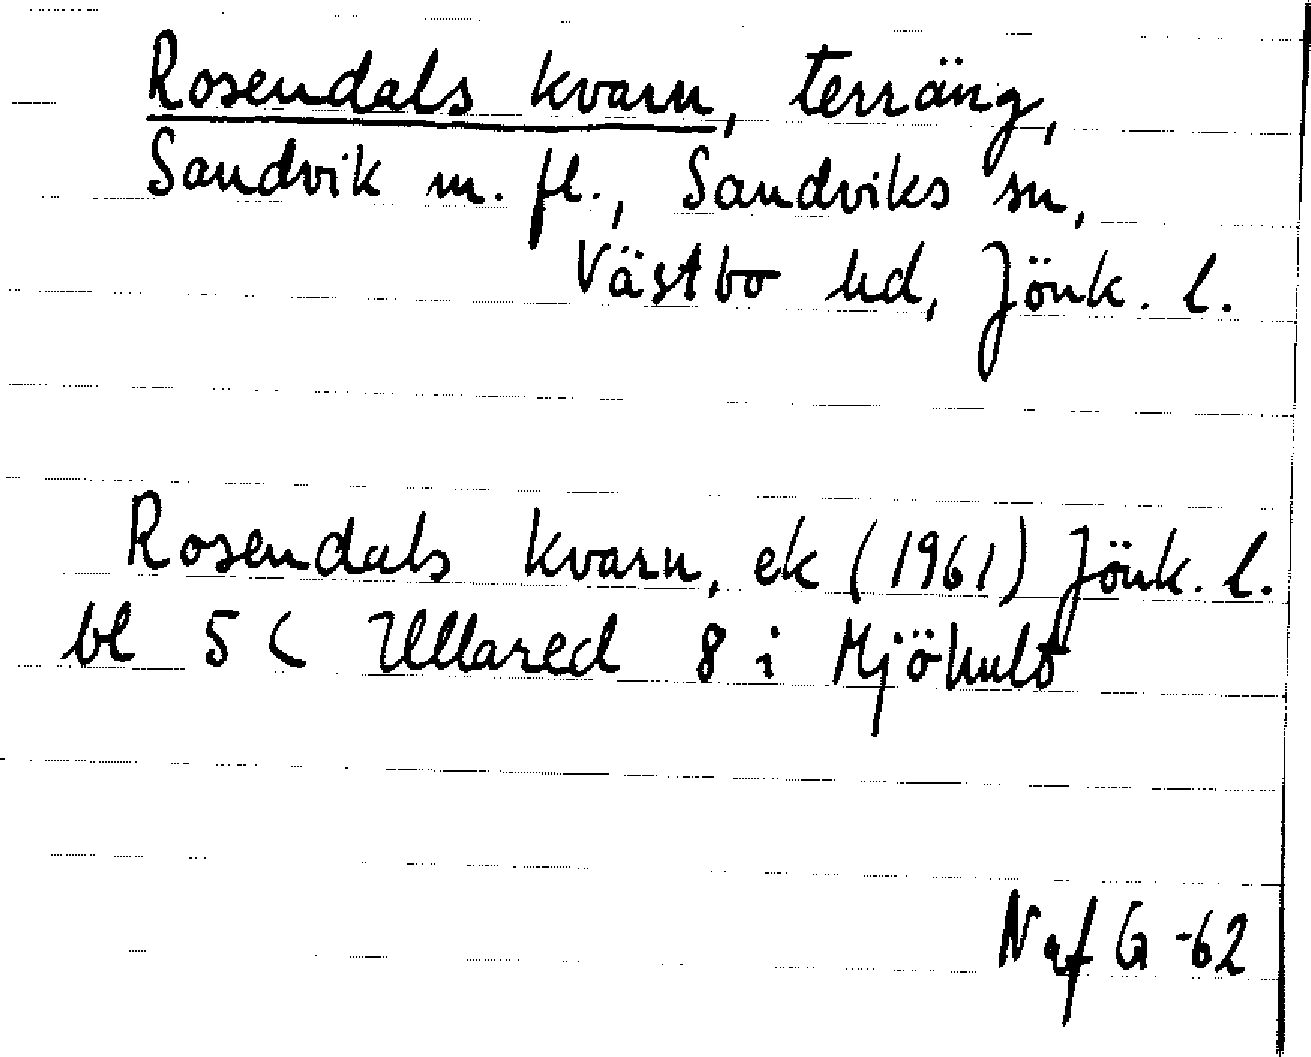 Rosendals kvarn, terräng,
Sandvik m. fl., Sandviks sn,
Västbo hd, Jönk. l.
Rosendals kvarn, ek (1961) Jönk. l.
bl 5 C Ullared 8 i Mjöhult
N af G -62